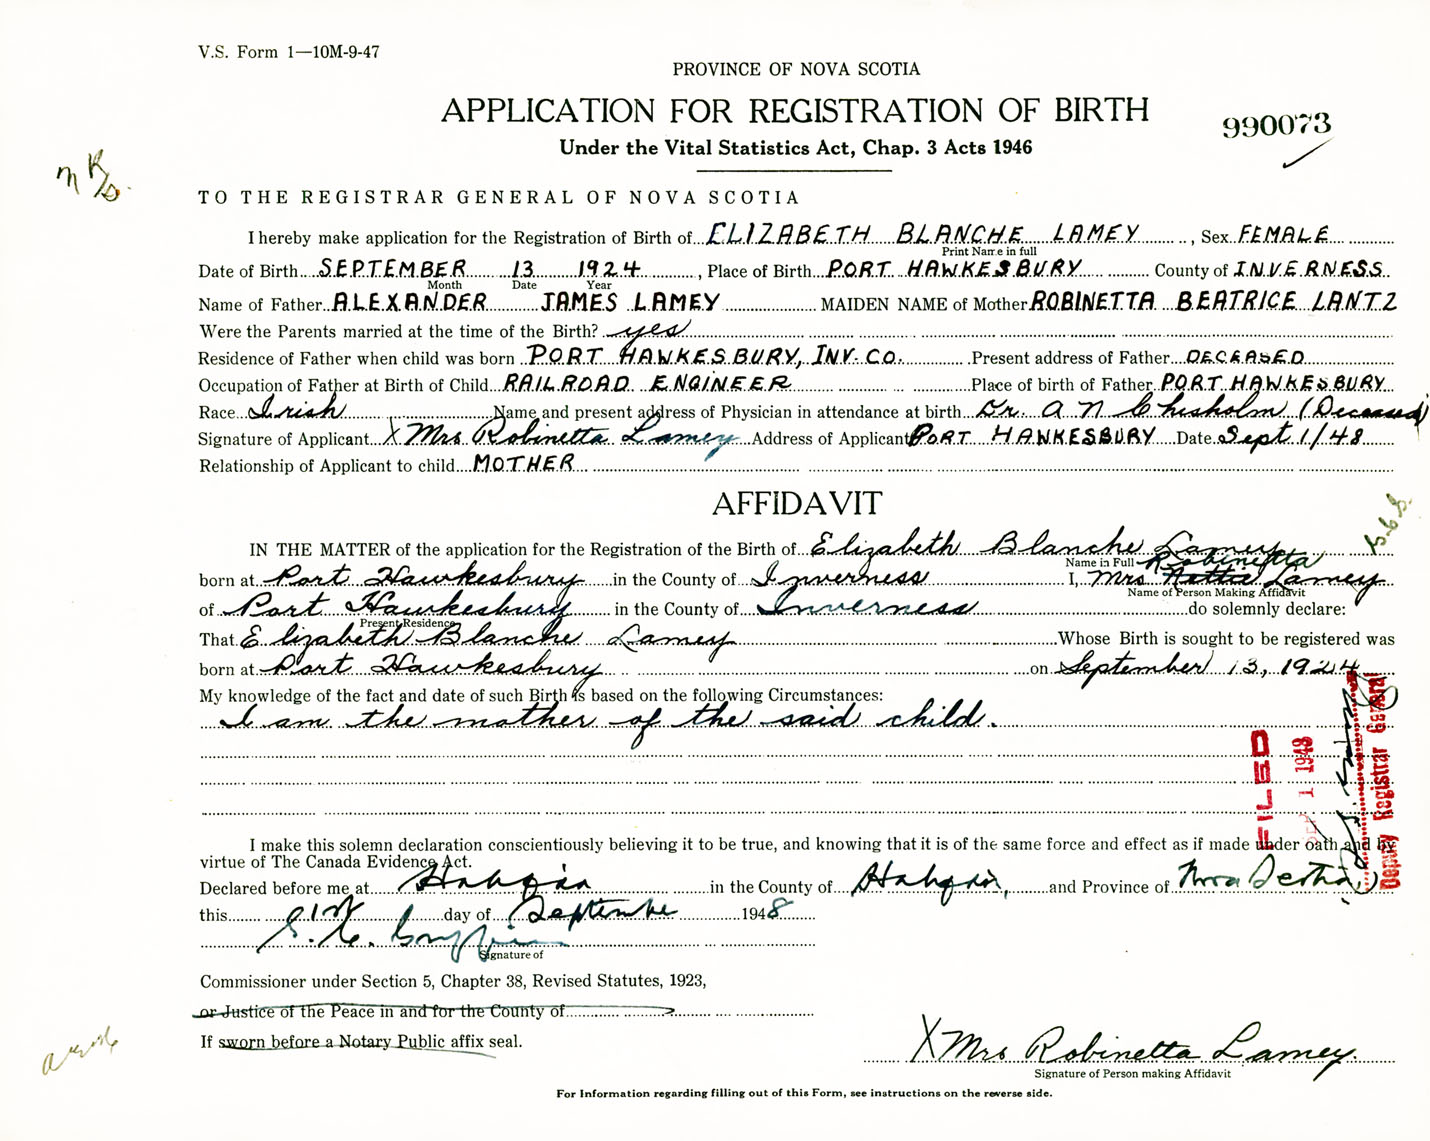 V.S. Form 1—10M-9-47
PROVINCE OF NOVA SCOTIA
APPLICATION FOR REGISTRATION OF BIRTH
990073
Under the Vital Statistics Act, Chap. 3 Acts 1946
TO THE REGISTRAR GENERAL OF NOVA SCOTIA
I hereby make application for the Registration of Birth of ELIZABETH BLANCHE LAMEY, Sex FEMALE
Print Name in full
Date of Birth SEPTEMBER 13 1924, Place of Birth PORT HAWKESBURY County of INVERNESS
Month Date Year
Name of Father ALEXANDER JAMES LAMEY MAIDEN NAME of Mother ROBINETTA BEATRICE LANTZ
Were the Parents married at the time of the Birth? yes
Residence of Father when child was born PORT HAWKESBURY, INV. CO. Present address of Father DECEASED
Occupation of Father at Birth of Child RAILROAD ENGINEER Place of birth of Father PORT HAWKESBURY
Race Irish Name and present address of Physician in attendance at birth Dr. A N Chisholm (Deceased)
Signature of Applicant X Mrs Robinetta Lamey Address of Applicant PORT HAWKESBURY Date Sept 1/48
Relationship of Applicant to child MOTHER
AFFIDAVIT
IN THE MATTER of the application for the Registration of the Birth of Elizabeth Blanche Lamey
Name in Full Robinetta
born at Port Hawkesbury in the County of Inverness I, Mrs Hattie Lamey
Name of Person Making Affidavit
of Port Hawkesbury in the County of Inverness do solemnly declare:
Present Residence
That Elizabeth Blanche Lamey Whose Birth is sought to be registered was
born at Port Hawkesbury on September 13, 1924
My knowledge of the fact and date of such Birth is based on the following Circumstances:
I am the mother of the said child.
FILED
SEP 1 1948
Deputy Registrar General
I make this solemn declaration conscientiously believing it to be true, and knowing that it is of the same force and effect as if made under oath and by
virtue of The Canada Evidence Act.
Declared before me at Halifax in the County of Halifax, and Province of Nova Scotia
this 1st day of September 1948
Signature of
Commissioner under Section 5, Chapter 38, Revised Statutes, 1923,
or Justice of the Peace in and for the County of
If sworn before a Notary Public affix seal.
X Mrs Robinetta Lamey
Signature of Person making Affidavit
For Information regarding filling out of this Form, see instructions on the reverse side.